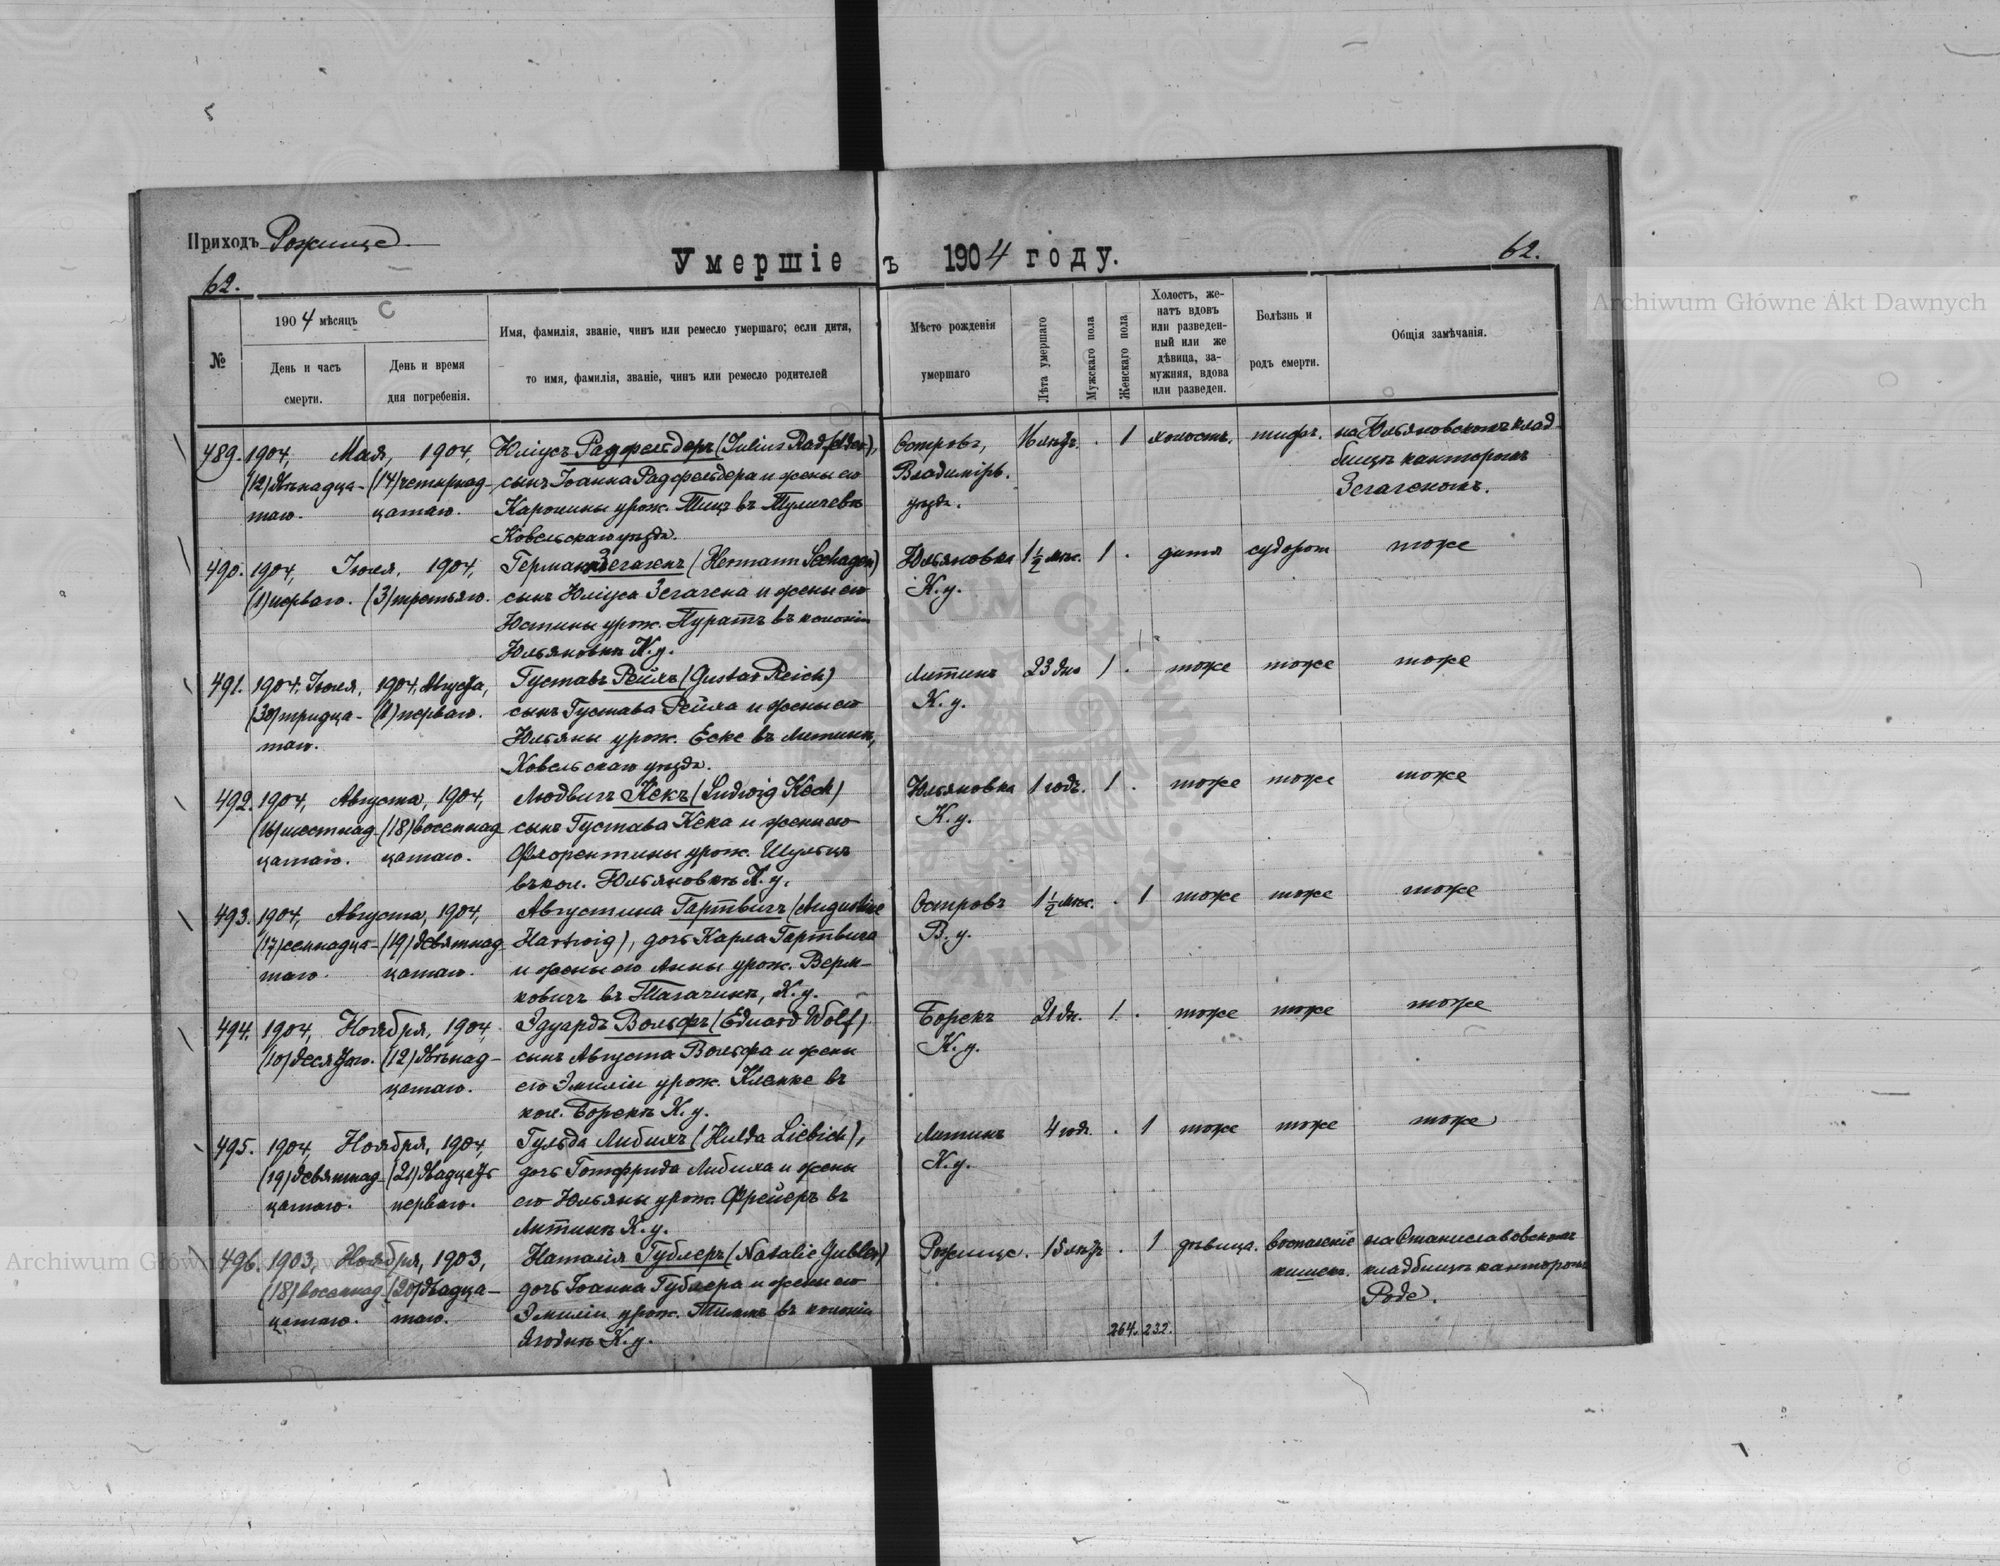 Приходъ Рожище
Умершіе въ 1904 году.
62.
62.
№
1904 мѣсяцъ
День и часъ смерти.
День и время дня погребенія.
Имя, фамилія, званіе, чинъ или ремесло умершаго; если дитя,
то имя, фамилія, званіе, чинъ или ремесло родителей
Мѣсто рожденія умершаго
Лѣта умершаго
Мужскаго пола
Женскаго пола
Холостъ, же-
натъ вдовъ
или разведен-
ный или же
дѣвица, за-
мужняя, вдова
или разведен.
Болѣзнь и родъ смерти.
Общія замѣчанія.
489. 1904, Мая, 1904, Юліусъ Радфельдеръ (Julius Radfelder), Островъ, 16 лѣтъ. . 1 холостъ. тифъ. на Юльяновскомъ клад-
(12) двѣнадца- (14) четырнад- сынъ Іоанна Радфельдера и жены его Владимірь. бищѣ канторомъ
таго. цатаго. Каролины урож. Тицъ въ Туличевѣ уѣзда. Зегагеномъ.
Ковельскаго уѣзда.
490. 1904, Іюля, 1904, Германъ Зегагенъ (Hermann Seehagen) Юльяновка 1½ мѣс. 1 . дитя судорог. тоже
(1) перваго. (3) третьяго. сынъ Юліуса Зегагена и жены его К. у.
Юстины урож. Пуратъ въ колоніи
Юльяновкѣ К. у.
491. 1904, Іюля, 1904, Августа, Густавъ Рейхъ (Gustav Reich) Литинъ 23 дня 1 . тоже тоже тоже
(30) тридца- (1) перваго. сынъ Густава Рейха и жены его К. у.
таго. Юльяны урож. Еске въ Литинѣ,
Ковельскаго уѣзда.
492. 1904, Августа, 1904, Людвигъ Кекъ (Ludwig Keck) Юльяновка 1 годъ. 1 . тоже тоже тоже
(16) шестнад- (18) восемнад- сынъ Густава Кека и жены его К. у.
цатаго. цатаго. Флорентины урож. Шульцъ
въ кол. Юльяновкѣ К. у.
493. 1904, Августа, 1904, Августина Гартвигъ (Augustine Островъ 1½ мѣс. . 1 тоже тоже тоже
(17) семнадца- (19) девятнад- Hartwig), дочь Карла Гартвига В. у.
таго. цатаго. и жены его Анны урож. Верм-
ковичъ въ Тагачинѣ, К. у.
494. 1904, Ноября, 1904, Эдуардъ Вольфъ (Eduard Wolf) Борекъ 21 дн. 1 . тоже тоже тоже
(10) десятаго. (12) двѣнад- сынъ Августа Вольфа и жены К. у.
цатаго. его Эмиліи урож. Кленке въ
кол. Борекѣ К. у.
495. 1904, Ноября, 1904, Гульда Либихъ (Hulda Liebich), Литинъ 4 год. . 1 тоже тоже тоже
(19) девятнад- (21) двадцать дочь Готфрида Либиха и жены К. у.
цатаго. перваго. его Юльяны урож. Фрейеръ въ
Литинѣ К. у.
496. 1903, Ноября, 1903, Наталія Гублеръ (Natalie Gubler) Рожище. 15 лѣтъ . 1 дѣвица. воспаленіе на Станиславовскомъ
(18) восемнад- (20) двадца- дочь Іоанна Гублера и жены его кишекъ. кладбищѣ канторомъ
цатаго. таго. Эмиліи урож. Тимъ въ колоніи Роде.
Ягодкѣ К. у.
264. 232.
Archiwum Główne Akt Dawnych
Archiwum Główne Akt Dawnych